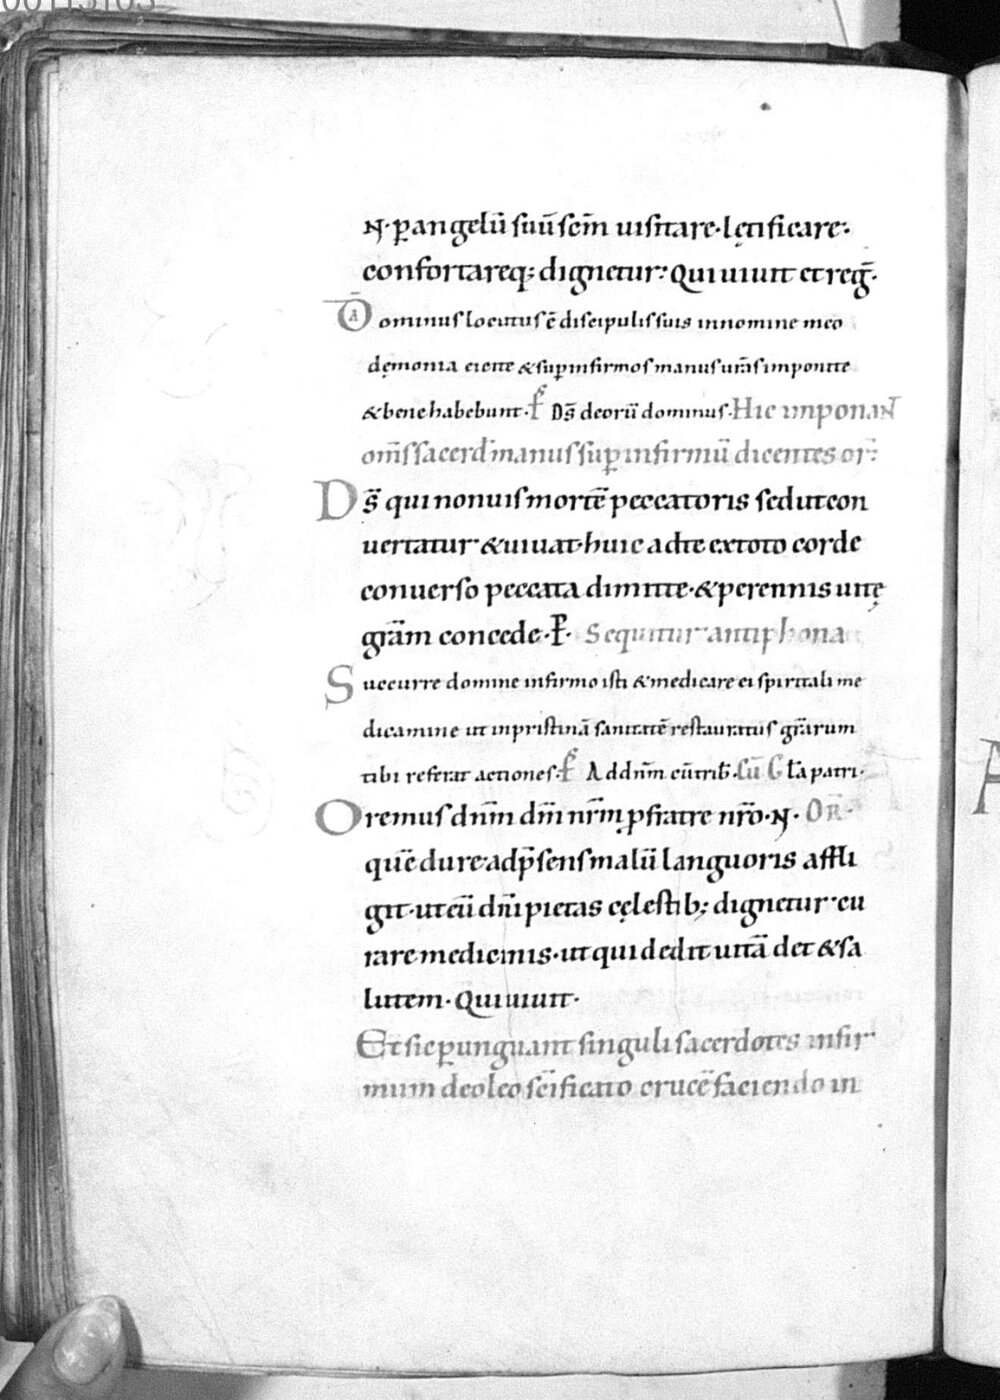 00115103
N· p̲ angelū suū sc̄m uisitare· lętificare·
confortareq; dignetur: Qui uiuit et reg̅·
Dominus locutus ē discipulis suis in nomine meo
dęmonia eicite & sup̲ infirmos manus ur̄as imponite
& bene habebunt· Ps̄ Ds̄ deorū dominus· Hic imponaNT
om̄s sacerd̄ manus sup̲ infirmū dicentes or̄:
Ds̄ qui non uis mortē peccatoris sed ut con
uertatur & uiuat· huic ad te ex toto corde
conuerso peccata dimitte· & perennis uitę
gr̄am concede· P̲· Sequitur antiphona
Succurre domine infirmo isti & medicare ei spiritali me
dicamine ut in pristinā sanitatē restauratus gr̄arum
tibi referat actiones· Ps̄ Ad dn̄m cū trib̄· Cū Gl̄a patri·
Oremus dn̄m dm̄ nr̄m p̲ fratre nr̄o· N· OR̄·
quē dure ad p̄sens malū languoris affli
git· ut eū dn̄i pietas cęlestib; dignetur cu
rare medicinis· ut qui dedit uitā det & sa
lutem· Qui uiuit·
Et sic p̲unguant singuli sacerdotes infir
mum de oleo sc̄ificato crucē faciendo in